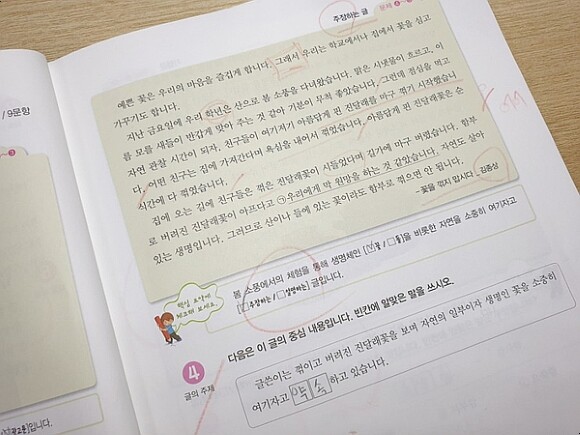 주장하는 글
예쁜 꽃은 우리의 마음을 즐겁게 합니다. 그래서 우리는 학교에서나 집에서 꽃을 심고
가꾸기도 합니다.
지난 금요일에 우리 학년은 산으로 봄 소풍을 다녀왔습니다. 맑은 시냇물이 흐르고, 이
름 모를 새들이 반갑게 맞아 주는 것 같아 기분이 무척 좋았습니다. 그런데 점심을 먹고
자연 관찰 시간이 되자, 친구들이 여기저기 아름답게 핀 진달래를 마구 꺾기 시작했습니
다. 어떤 친구는 집에 가져간다며 욕심을 내어서 꺾었습니다. 아름답게 핀 진달래꽃은 순
식간에 다 꺾였습니다.
집에 오는 길에 친구들은 꺾은 진달래꽃이 시들었다며 길가에 마구 버렸습니다. 함부
로 버려진 진달래꽃이 아프다고 ㉠우리에게 막 원망을 하는 것 같았습니다. 자연도 살아
있는 생명입니다. 그러므로 산이나 들에 있는 꽃이라도 함부로 꺾으면 안 됩니다.
- 꽃을 꺾지 맙시다 - 김종상
/ 9문항
핵심 요약에
체크해 보세요.
봄 소풍에서의 체험을 통해 생명체인 [☑꽃 / □돌]을 비롯한 자연을 소중히 여기자고
[☑주장하는 / □설명하는] 글입니다.
4
글의 주제
다음은 이 글의 중심 내용입니다. 빈칸에 알맞은 말을 쓰시오.
글쓴이는 꺾이고 버려진 진달래꽃을 보며 자연의 일부이자 생명인 꽃을 소중히
여기자고 약속 하고 있습니다.
입니다.